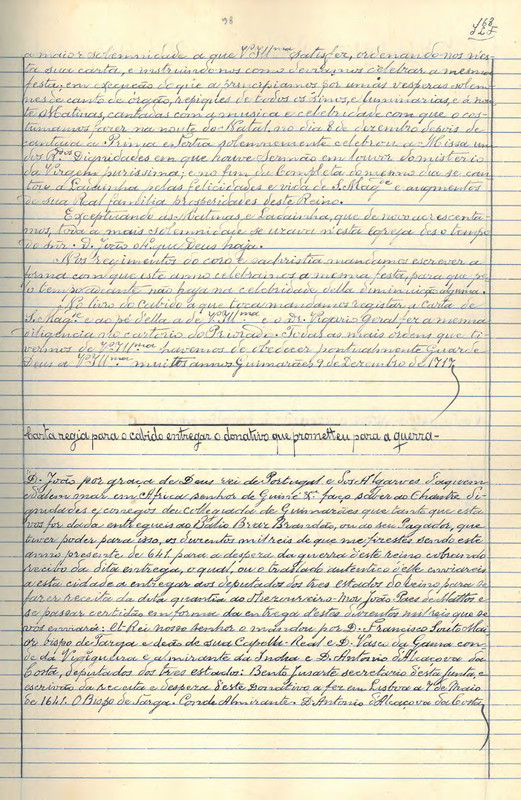 98
168
a maior solemnidade a que V.ª Ill.ma satisfez, ordenando nos n'es-
ta sua carta, e instruindo nos como deviamos celebrar a mesma
festa; em execução do que a principiamos por umas vesperas solem-
nes de canto de orgão, repiques de todos os sinos, e luminarias, e á noi-
te Matinas, cantadas com a musica e celebridade com que o cos-
tumamos fazer na noute do Natal, no dia 8 de dezembro depois de
cantada a Prima e Tertia solemnemente celebrou a Missa um
dos R.dos Dignidades em que houve Sermão em louvor do misterio
da Virgem purissima; e no fim da Completa do mesmo dia se can-
tou a Ladainha pelas felicidades e vida de S. Mag.e e augmentos
de sua Real familia prosperidades deste Reino.
Exceptuando as Matinas e Ladainha, que de novo accrescenta-
mos, toda a mais solemnidade se usava n'esta egreja des o tempo
do snr. D. João o 4.º que Deus haja.
Nos regimentos do coro e sachristia mandamos escrever a
forma com que este anno celebramos a mesma festa, para que pe-
lo tempo adiante não haja na celebridade della diminuição alguma.
No livro do Cabido a que toca mandamos registar a Carta de
S. Mag.e e ao pé d'ella a de V.ª Ill.ma e o Dr. Vigario Geral fez a mesma
diligencia no cartorio do Priorado. Todas as mais ordens que ti-
vermos de V.ª Ill.ma havemos de obedecer pontualmente Guarde
Deus a V.ª Ill.ma muitos annos Guimarães 9 de Dezembro de 1717
Carta regia para o cabido entregar o donativo que prometteu para a guerra-
D. João por graça de Deus rei de Portugal e dos Algarves d'aquem
e d'alem mar em Africa senhor de Guiné &.ª faço saber ao Chantre di-
gnidades e conegos da collegiada de Guimarães que tanto que esta
vos for dada entregueis ao Balio Braz Brandão, ou ao seu Pagador, que
tiver poder para isso, os duzentos mil reis de que me fizestes serviço este
anno presente de 641 para a despeza da guerra d'este reino cobrando
recibo da dita entrega, o qual, ou o traslado autentico d'elle enviareis
a esta cidade a entregar aos deputados dos tres estados do reino para se
fazer receita da dita quantia ao thezoureiro-mor João Paes de Mattos e
se passar certidão em forma da entrega d'estes duzentos mil reis que se
vos enviará: El-Rei nosso senhor o mandou por D. Francisco Souto Mai-
or bispo de Targa e deão de sua Capella Real e D. Vasco da Gama con-
de da Vidigueira e almirante da India e D. Antonio d'Alcaçova da
Costa, deputados dos tres estados: Bento fusarte secretario d'esta junta, e
escrivão da receita e despeza d'este Donativo a fez em Lisboa a 7 de Maio
de 1641. O Bispo de Targa. Conde Almirante. D. Antonio d'Alcaçova da Costa